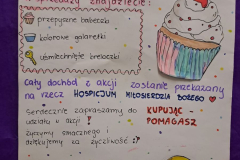 znajdziecie:
przepyszne babeczki
kolorowe galaretki
uśmiechnięte breloczki
Cały dochód z akcji zostanie przekazany
na rzecz HOSPICJUM MIŁOSIERDZIA BOŻEGO
Serdecznie zapraszamy do
udziału w akcji!
KUPUJĄC
POMAGASZ
Życzymy smacznego i
dziękujemy za życzliwość :)